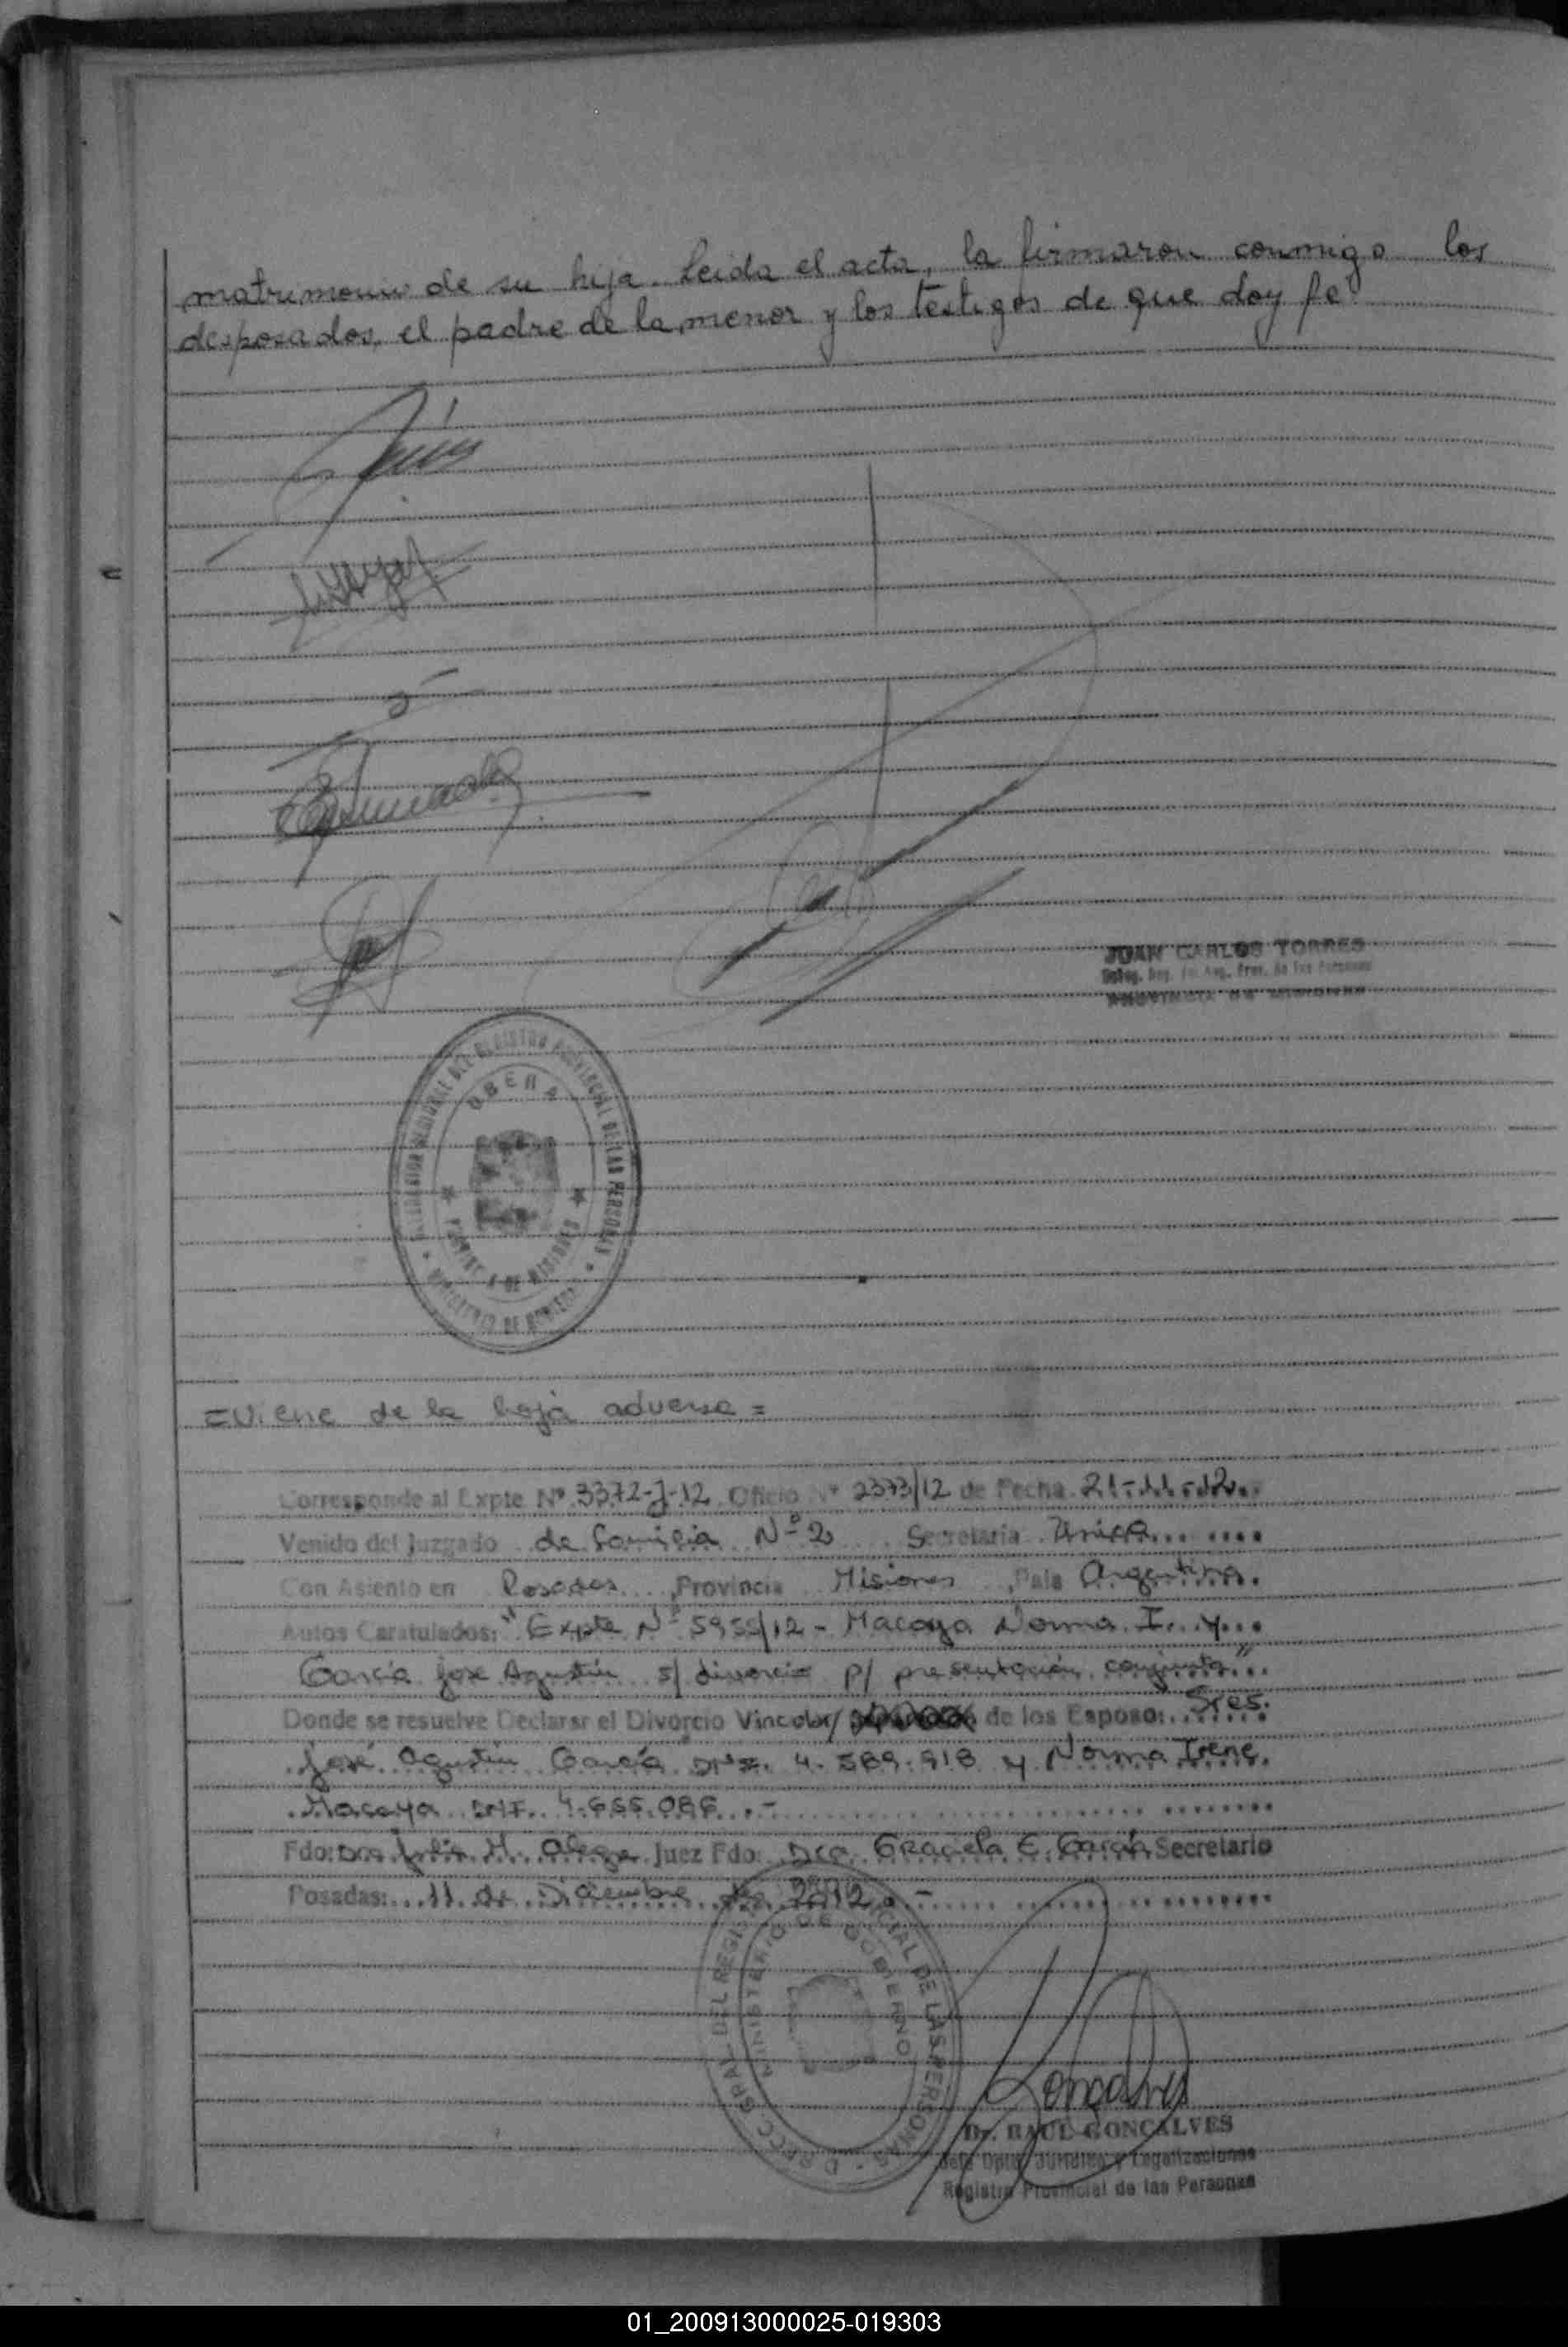 matrimonio de su hija. Leida el acta, la firmaron conmigo los
desposados, el padre de la menor y los testigos de que doy fe.
JUAN CARLOS TORRES
PROVINCIA DE MISIONES
DELEGACION REGIONAL DEL REGISTRO PROVINCIAL DE LAS PERSONAS
OBERA
PROVINCIA DE MISIONES
MINISTERIO DE GOBIERNO
=Viene de la hoja adversa=
Corresponde al Expte Nº 3372-J-12 Oficio Nº 2373/12 de Fecha 21-11-12...
Venido del Juzgado de Familia Nº 2 Secretaria Unica.......
Con Asiento en Posadas...,Provincia Misiones ,Pais Argentina.
Autos Caratulados: "Expte Nº 5955/12 - Macaya Norma I. y...
García José Agustín s/ divorcio p/ presentación conjunta"..
Donde se resuelve Declarar el Divorcio Vincular/ de los Esposo: Sres.
José Agustín García DNI. 4.589.918 y Norma Irene
Macaya DNI. 4.655.086.-
Fdo: Dra Juez Fdo: Dra. Graciela E. García Secretario
Posadas: 11 de Diciembre de 2012.-
DIRECC GRAL DEL REGISTRO PROVINCIAL DE LAS PERSONAS
MINISTERIO DE GOBIERNO
Goncalves
Dr. RAUL GONCALVES
Jefe Dpto. Jurídico y Legalizaciones
Registro Provincial de las Personas
01_200913000025-019303